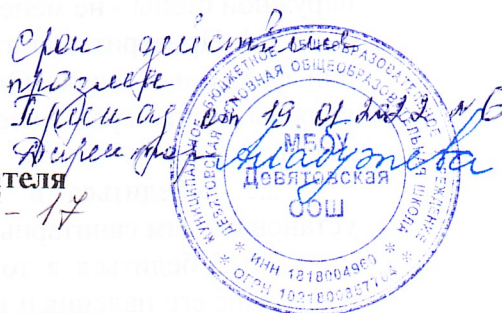 Срок действия
продлен
Приказ от 19.01.2022 № 6
Директор
МУНИЦИПАЛЬНОЕ БЮДЖЕТНОЕ ОБЩЕОБРАЗОВАТЕЛЬНОЕ УЧРЕЖДЕНИЕ
ДЕВЯТОВСКАЯ ОСНОВНАЯ ОБЩЕОБРАЗОВАТЕЛЬНАЯ ШКОЛА
МБОУ
Девятовская
ООШ
ИНН 1818004960
ОГРН
теля
- 17